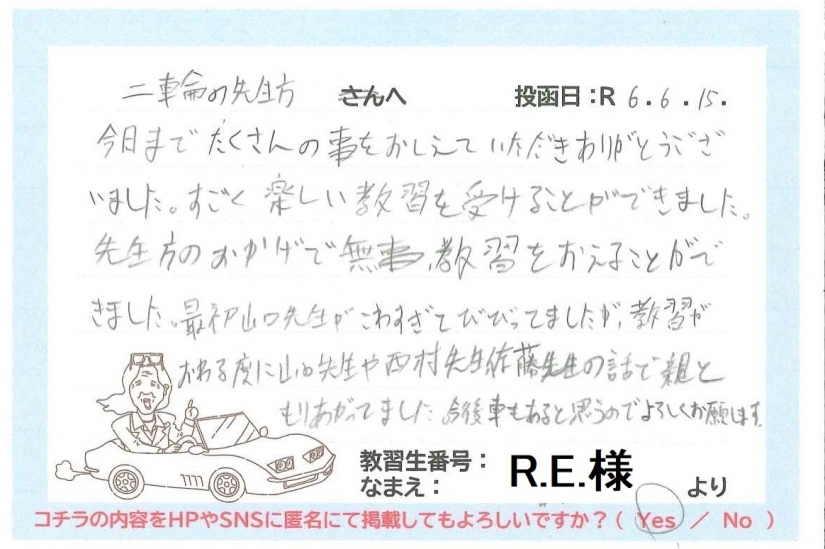 二輪の先生方 さんへ 投函日:R 6.6.15.
今日まで たくさんの事をおしえていただきありがとうござ
いました。すごく 楽しい教習を受けることができました。
先生方のおかげで無事、教習をおえることがで
きました。最初山口先生がこわすぎてびびってましたが、教習が
おわる度に山口先生や西村先生佐藤先生の話で親と
もりあがってました。今後車もあると思うのでよろしくお願します
教習生番号:
なまえ: R.E.様 より
コチラの内容をHPやSNSに匿名にて掲載してもよろしいですか?( Yes / No )